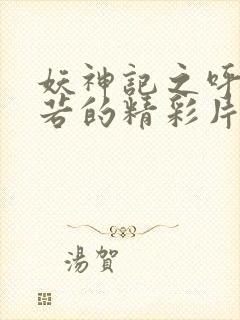 妖神記之呼
若的精彩片
湯賀